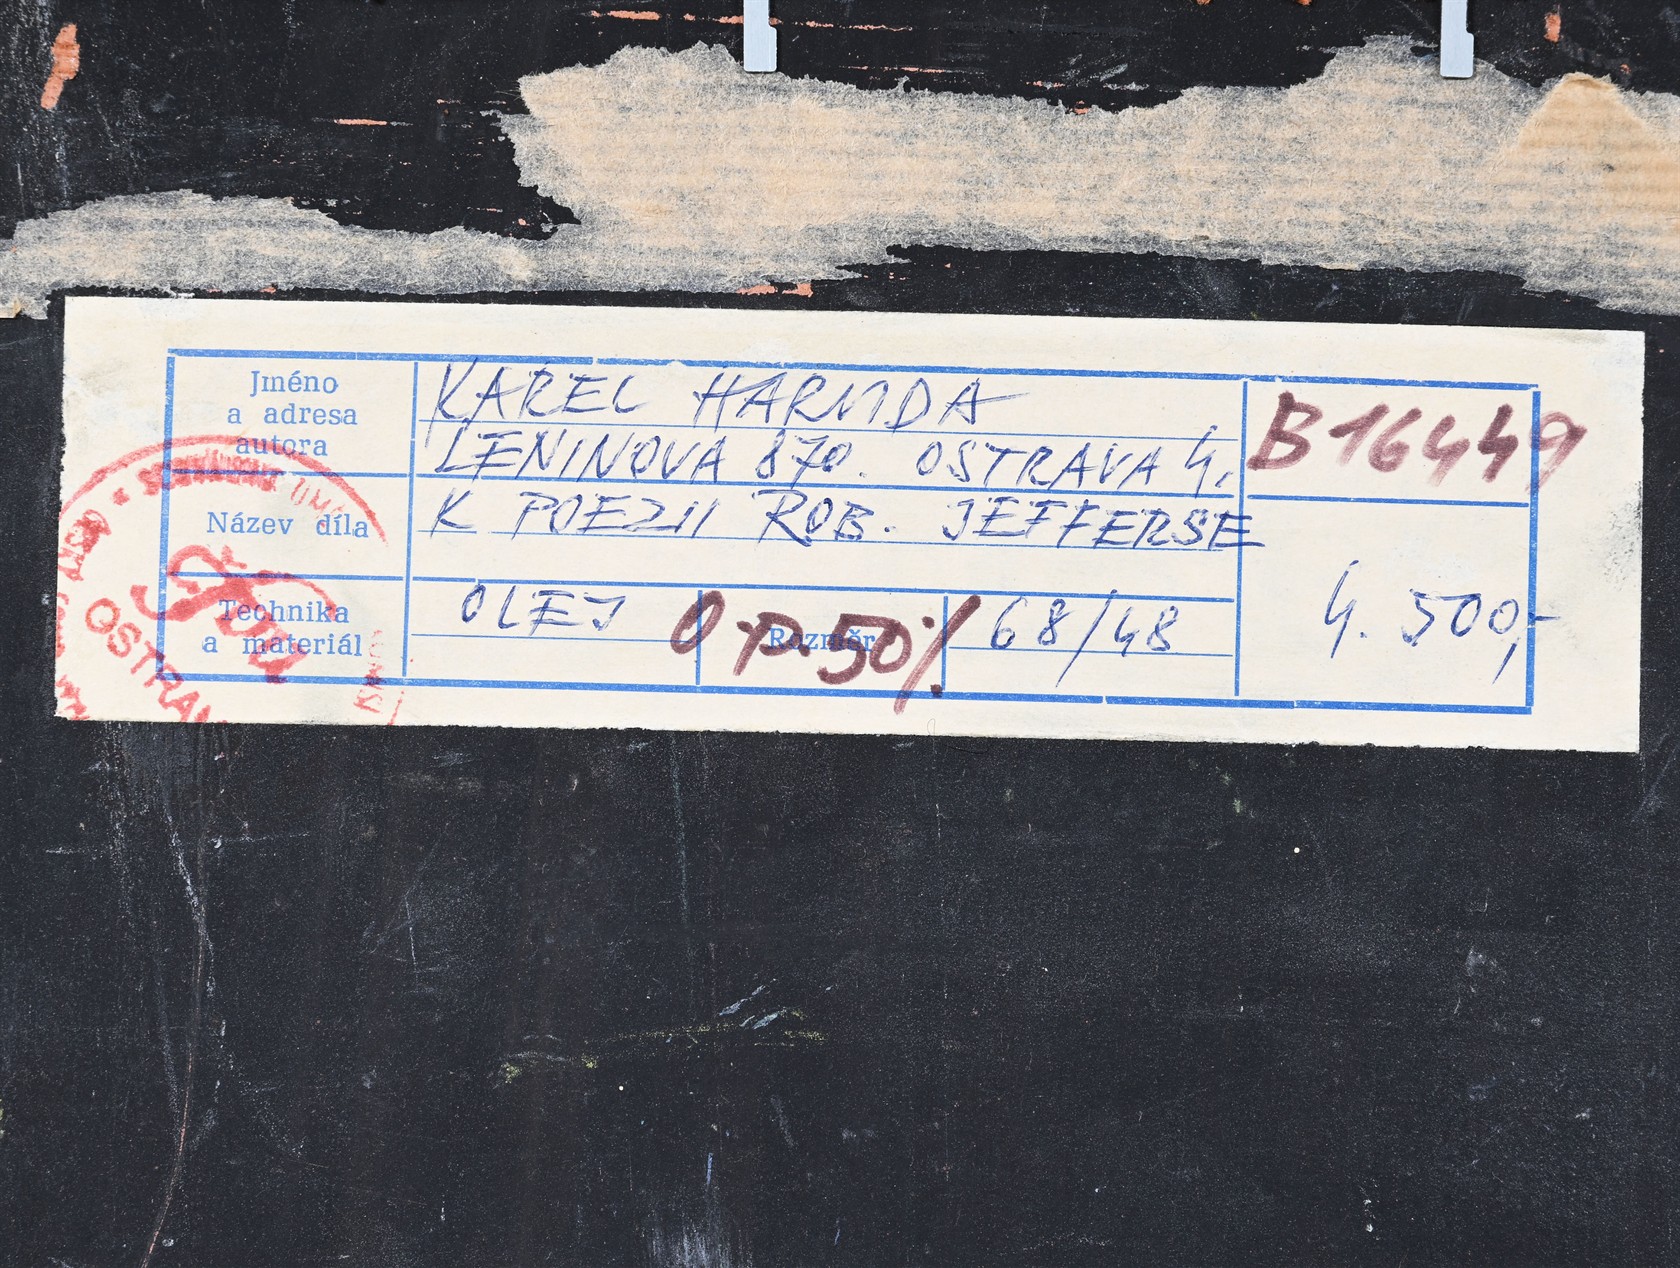 Jméno
a adresa
autora
KAREL HARUDA
LENINOVA 870. OSTRAVA 4.
B 16449
Název díla
K POEZII ROB. JEFFERSE
Technika
a materiál
OLEJ
Rozměr
O.P. 50%
68/48
4.500,-
OSTRAVA